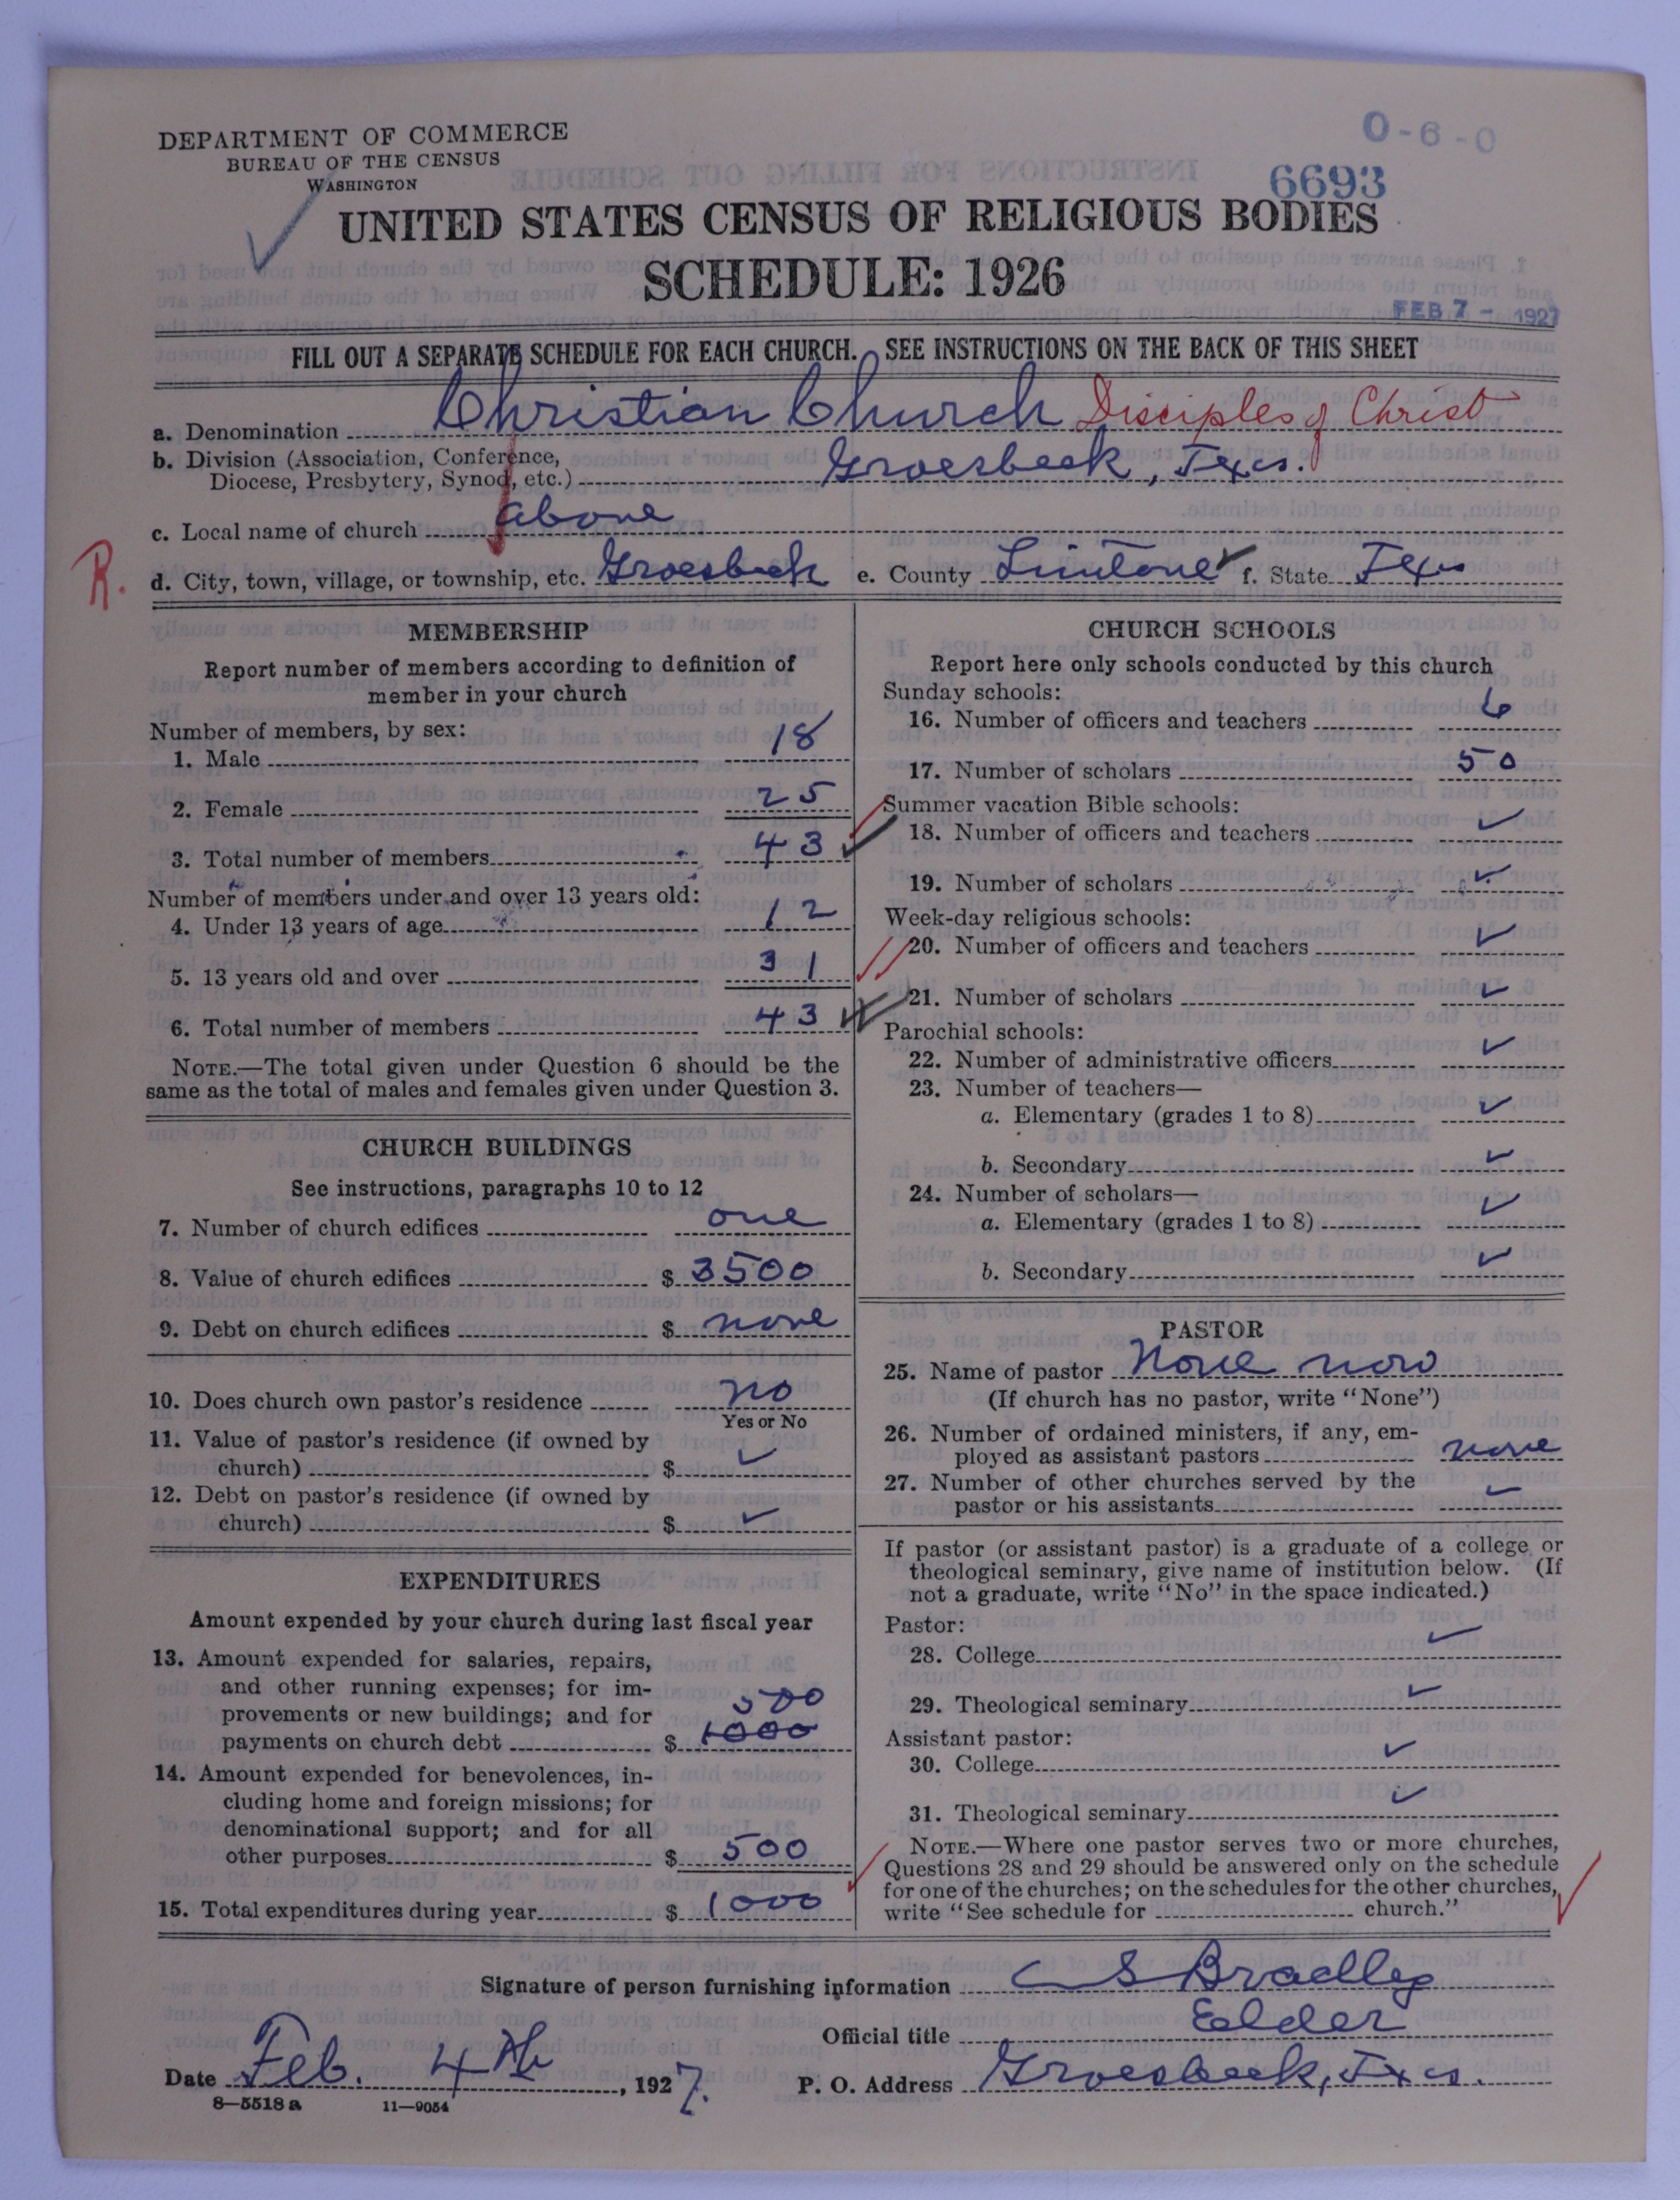 0-6-0
DEPARTMENT OF COMMERCE
BUREAU OF THE CENSUS
WASHINGTON
6693
UNITED STATES CENSUS OF RELIGIOUS BODIES
SCHEDULE: 1926
FEB 7 - 1927
FILL OUT A SEPARATE SCHEDULE FOR EACH CHURCH. SEE INSTRUCTIONS ON THE BACK OF THIS SHEET
a. Denomination Christian Church Disciples of Christ
b. Division (Association, Conference,
Diocese, Presbytery, Synod, etc.) Groesbeck, Texs.
c. Local name of church above
R.
d. City, town, village, or township, etc. Groesbeck e. County Limtone f. State Texs
MEMBERSHIP
Report number of members according to definition of
member in your church
Number of members, by sex:
1. Male 18
2. Female 25
3. Total number of members 43
Number of members under and over 13 years old:
4. Under 13 years of age 12
5. 13 years old and over 31
6. Total number of members 43
NOTE.—The total given under Question 6 should be the
same as the total of males and females given under Question 3.
CHURCH BUILDINGS
See instructions, paragraphs 10 to 12
7. Number of church edifices one
8. Value of church edifices $ 3500
9. Debt on church edifices $ none
10. Does church own pastor's residence no
Yes or No
11. Value of pastor's residence (if owned by
church) $ ✓
12. Debt on pastor's residence (if owned by
church) $ ✓
EXPENDITURES
Amount expended by your church during last fiscal year
13. Amount expended for salaries, repairs,
and other running expenses; for im-
provements or new buildings; and for 500
payments on church debt $ 1000
14. Amount expended for benevolences, in-
cluding home and foreign missions; for
denominational support; and for all
other purposes $ 500
15. Total expenditures during year $ 1000
CHURCH SCHOOLS
Report here only schools conducted by this church
Sunday schools:
16. Number of officers and teachers 6
17. Number of scholars 50
Summer vacation Bible schools:
18. Number of officers and teachers ✓
19. Number of scholars ✓
Week-day religious schools:
20. Number of officers and teachers ✓
21. Number of scholars ✓
Parochial schools:
22. Number of administrative officers ✓
23. Number of teachers—
a. Elementary (grades 1 to 8) ✓
b. Secondary ✓
24. Number of scholars—
a. Elementary (grades 1 to 8) ✓
b. Secondary ✓
PASTOR
25. Name of pastor None now
(If church has no pastor, write "None")
26. Number of ordained ministers, if any, em-
ployed as assistant pastors none
27. Number of other churches served by the
pastor or his assistants ✓
If pastor (or assistant pastor) is a graduate of a college or
theological seminary, give name of institution below. (If
not a graduate, write "No" in the space indicated.)
Pastor:
28. College ✓
29. Theological seminary ✓
Assistant pastor:
30. College ✓
31. Theological seminary ✓
NOTE.—Where one pastor serves two or more churches,
Questions 28 and 29 should be answered only on the schedule
for one of the churches; on the schedules for the other churches,
write "See schedule for church."
Signature of person furnishing information CS Bradley
Official title Eelder
Date Feb. 4th, 1927. P. O. Address Groesbeck, Texs.
8—5518 a 11—9054